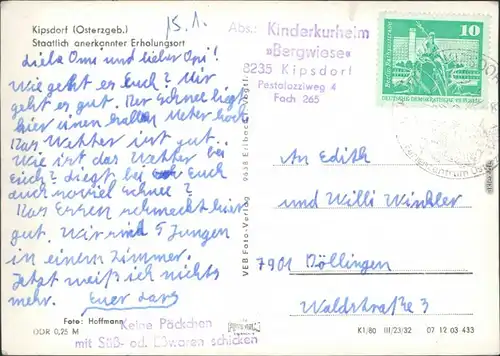 Kipsdorf (Osterzgeb.)
Staatlich anerkannter Erholungsort
15.1.
Liebe Oma und lieber Opi!
Wie geht es Euch? Mir
geht es gut. Der Schnee liegt
hier einen halben Meter hoch.
Das Wetter ist gut.
Wie ist das Wetter bei
Euch? Liegt bei Euch
auch soviel Schnee?
Das Essen schmeckt hier
gut. Wir sind 5 Jungen
in einem Zimmer.
Jetzt weiß ich nichts
mehr. Euer Lars
Foto: Hoffmann
DDR 0,25 M
Keine Päckchen
mit Süß- od. Eßwaren schicken
VEB Foto-Verlag 9658 Erlbach Vogtl.
Abs.: Kinderkurheim
»Bergwiese«
8235 Kipsdorf
Pestalozziweg 4
Fach 265
10
DEUTSCHE DEMOKRATISCHE REPUBLIK
An Edith
und Willi Winkler
7901 Möllingen
Waldstraße 3
K1/80 III/23/32 07 12 03 433